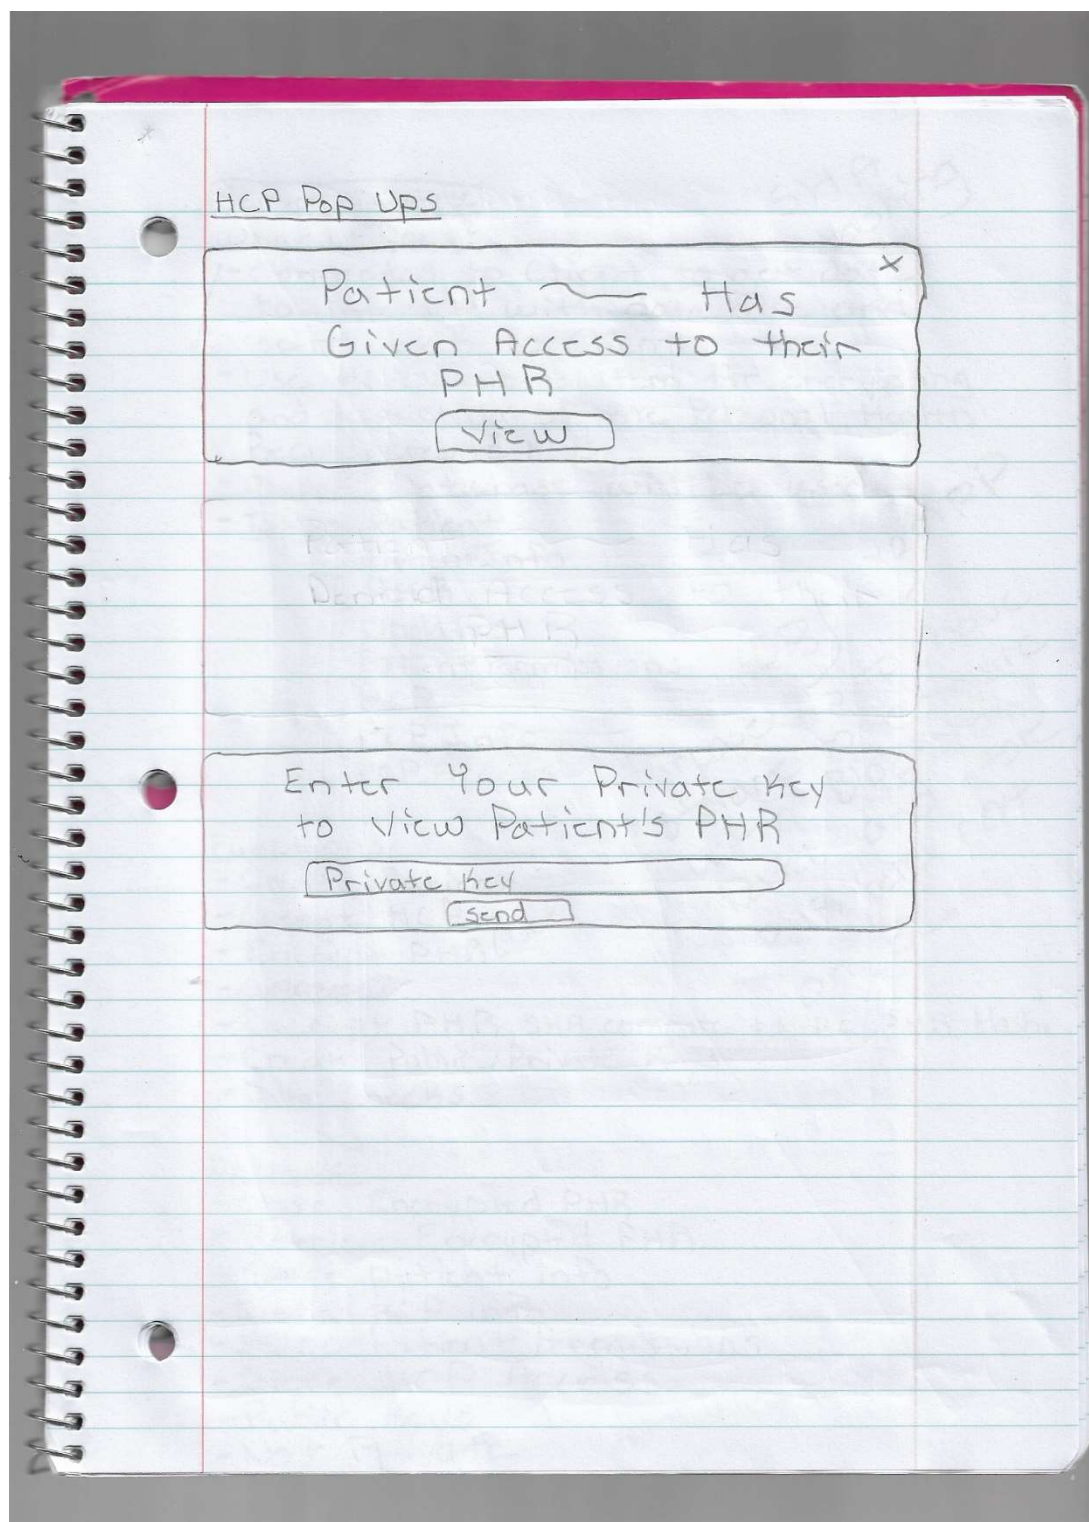 HCP Pop Ups
X
Patient Has
Given Access to their
PHR
View
Access
PHR
Enter Your Private Key
to View Patient's PHR
Private Key
Send